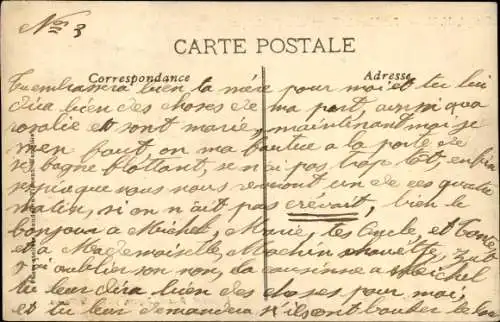 No 3
CARTE POSTALE
Correspondance
Adresse
Tu embrassera bien ta mère pour moi et tu lui
dira bien des choses de ma part, aussi qua
rosalie et sont marie, maintenant moi je
men fout on ma la porte de
se bagne flottant, se n'ai pas trop tot, enfin
que nous nous un de ces quatre
matin, si on n'ait pas crevait, bien le
bonjour a Michel, Marie, tes oncle, et tante
et a Mademoiselle Machin chouette, zut
j'ai oublier son non, da cousinne a Michel
tu leur dira bien des choses pour moi,
et tu leur demandera s'ils ont